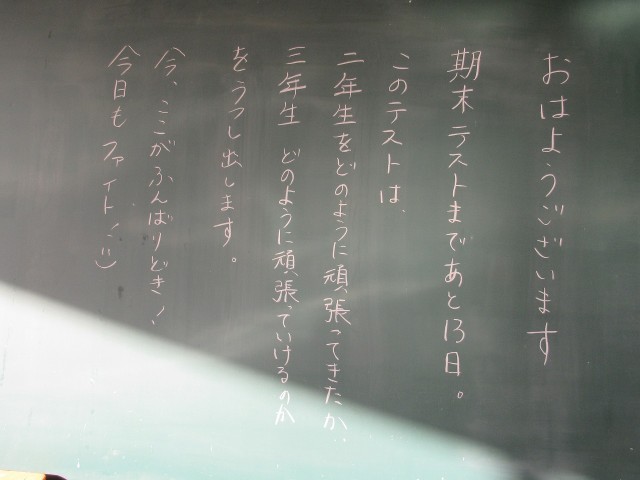 おはようございます
期末テストまであと13日。
このテストは、
二年生をどのように頑張ってきたか、
三年生 どのように頑張っていけるのか
をうつし出します。
今、ここがふんばりどき！
今日もファイト！！:)